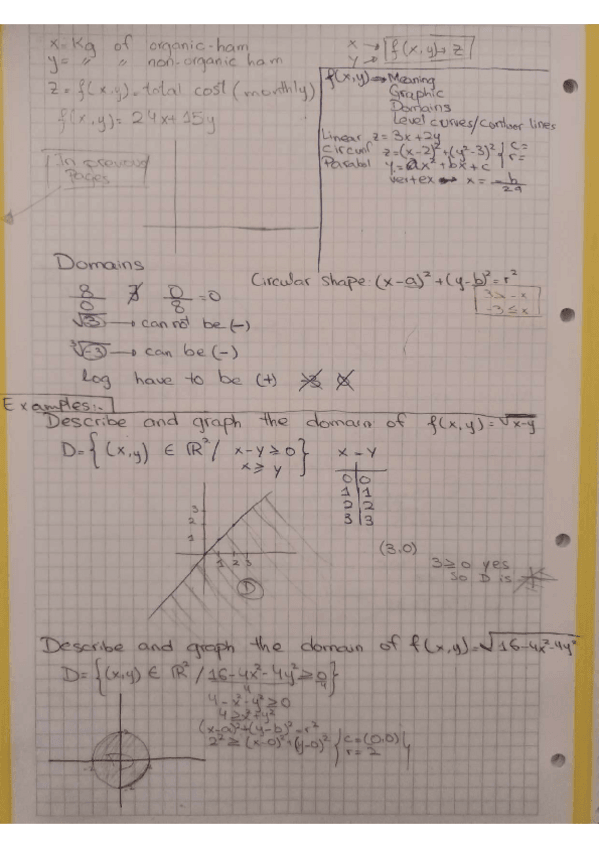 x=Kg of organic-ham
y= " " non-organic ham
z=f(x,y)=total cost (monthly)
f(x,y)=24x+15y
In previous
Pages
x → f(x,y)→ z
y →
f(x,y)→ Meaning
Graphic
Domains
Level curves/contour lines
Linear z=3x+2y
Circunf z=(x-2)²+(y²-3)² { c=
r=
Parabol y=ax²+bx+c
vertex → x=-b/2a
Domains
Circular shape: (x-a)²+(y-b)²=r²
8/0 ∄ 0/8=0
3>-x
-3≤x
√3 → can not be (-)
∛-3 → can be (-)
Log have to be (+)
Examples:-
Describe and graph the domain of f(x,y)=√x-y
D={(x,y) ∈ ℝ²/ x-y≥0}
x≥y
x - y
0|0
1|1
2|2
3|3
3
2
1
1 2 3
D
(3,0)
3≥0 yes
So D is
Describe and graph the domain of f(x,y)=√16-4x²-4y²
D={(x,y) ∈ ℝ²/16-4x²-4y²≥0}
4 4
4-x²-y²≥0
4≥x²+y²
(x-a)²+(y-b)²=r²
2²≥(x-0)²+(y-0)² { c=(0,0)
r=2